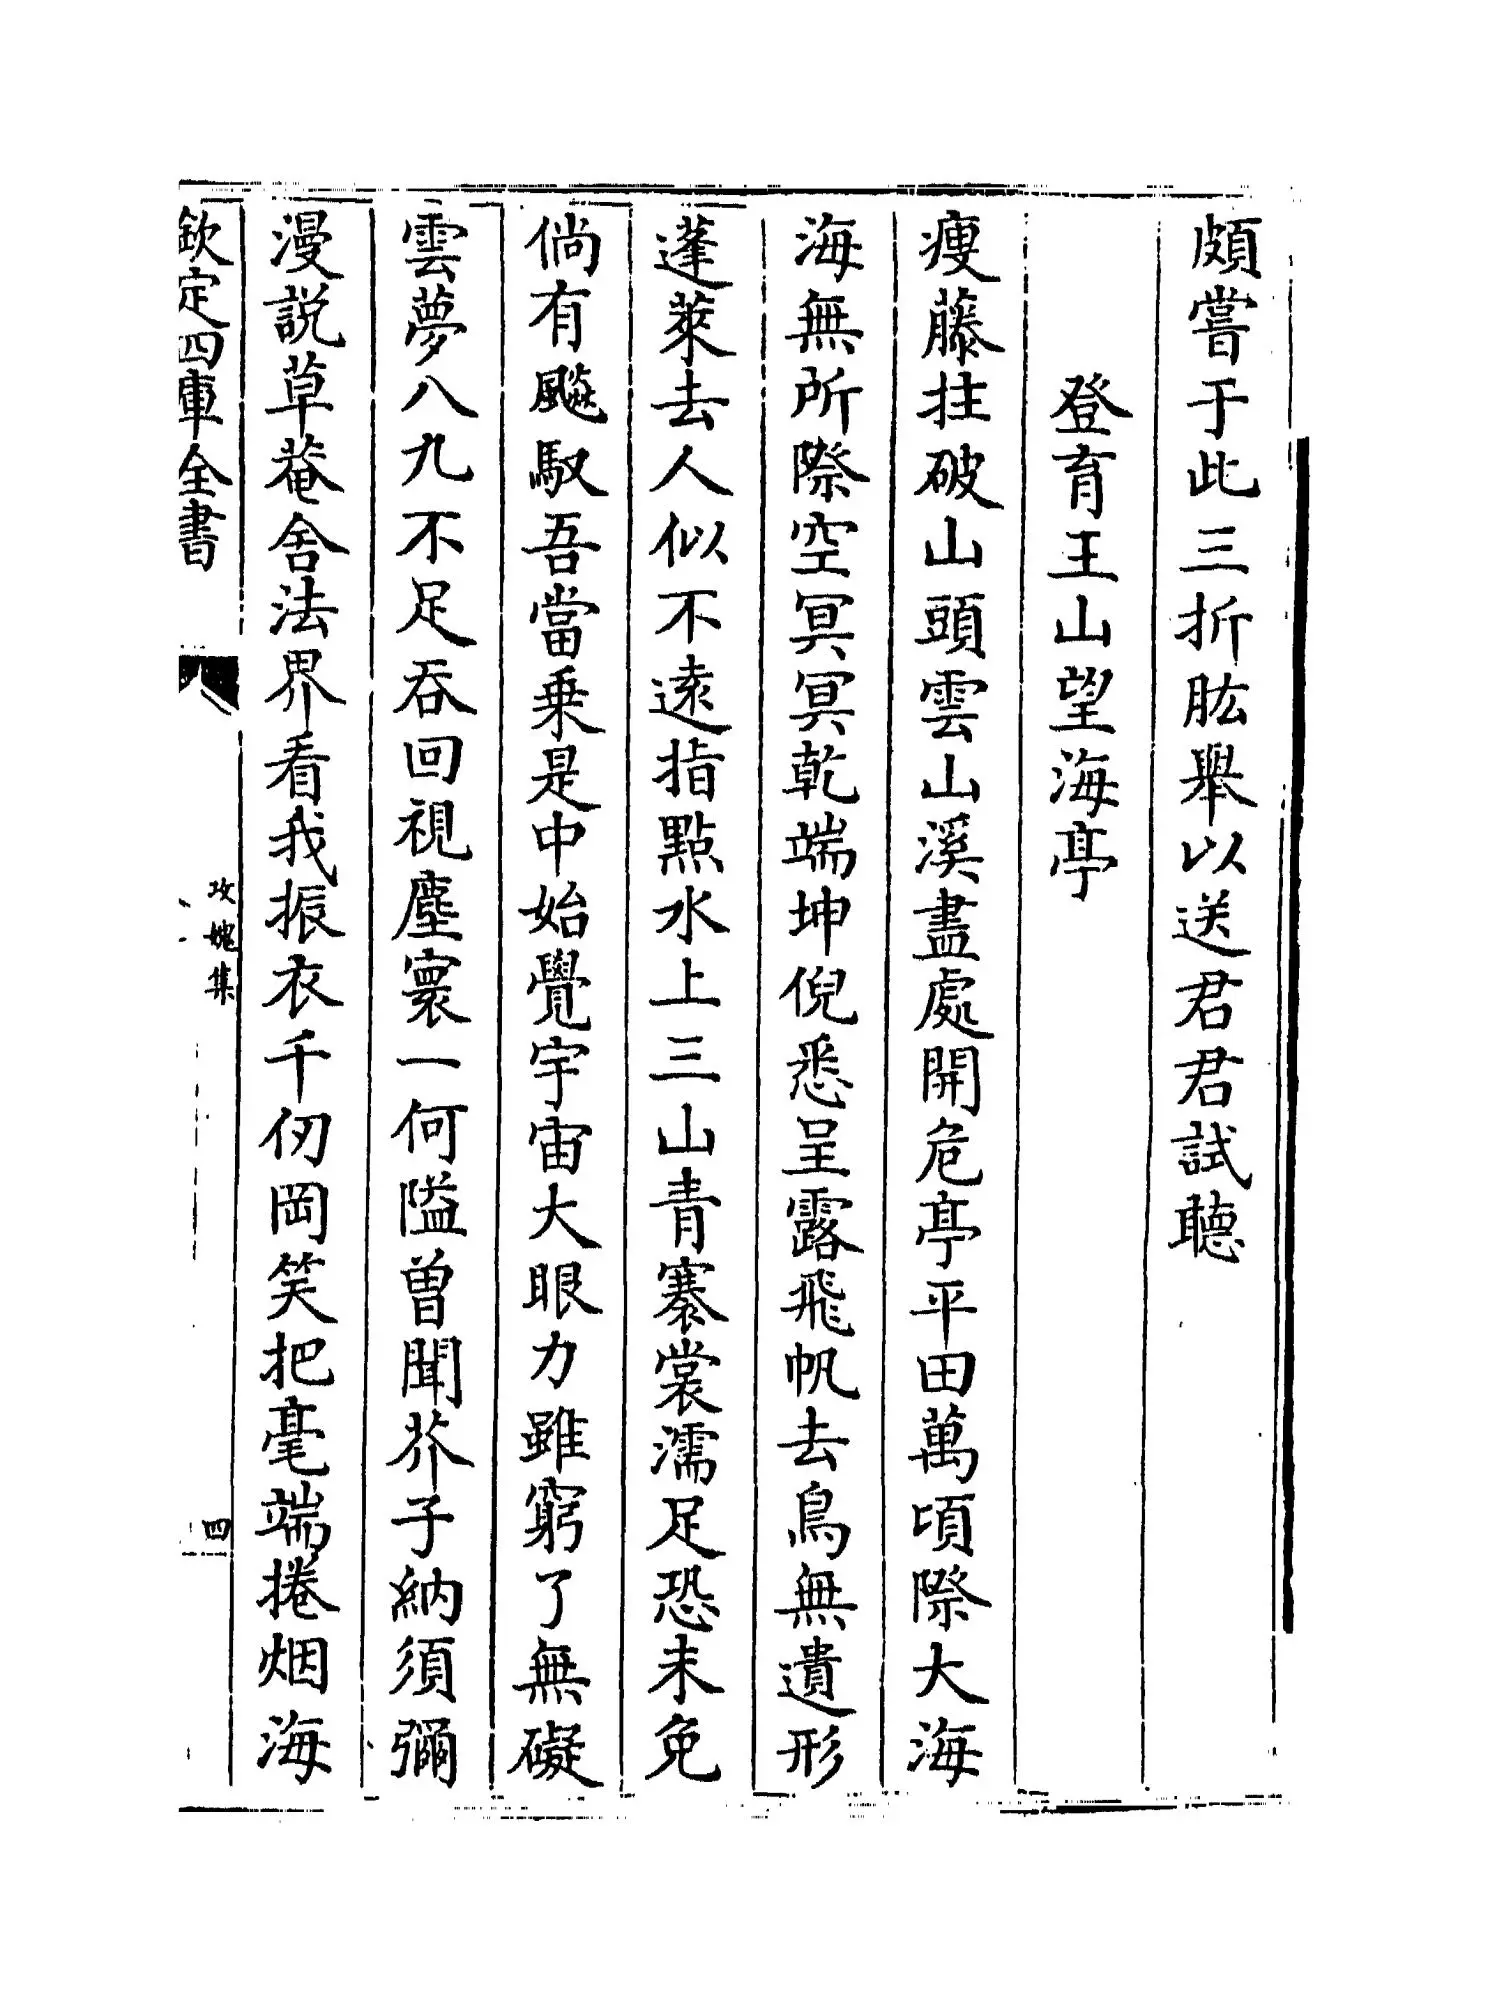 頗嘗于此三折肱舉以送君君試聽
登育王山望海亭
瘦藤拄破山頭雲山溪盡處開危亭平田萬頃際大海
海無所際空冥冥乾端坤倪悉呈露飛帆去鳥無遺形
蓬萊去人似不逺指點水上三山青褰裳濡足恐未免
倘有飈馭吾當乗是中始覺宇宙大眼力雖窮了無礙
雲夢八九不足吞回視塵寰一何隘曽聞芥子納須彌
漫説草菴舍法界看我振衣千仞岡笑把毫端捲烟海
欽定四庫全書
攻媿集
四